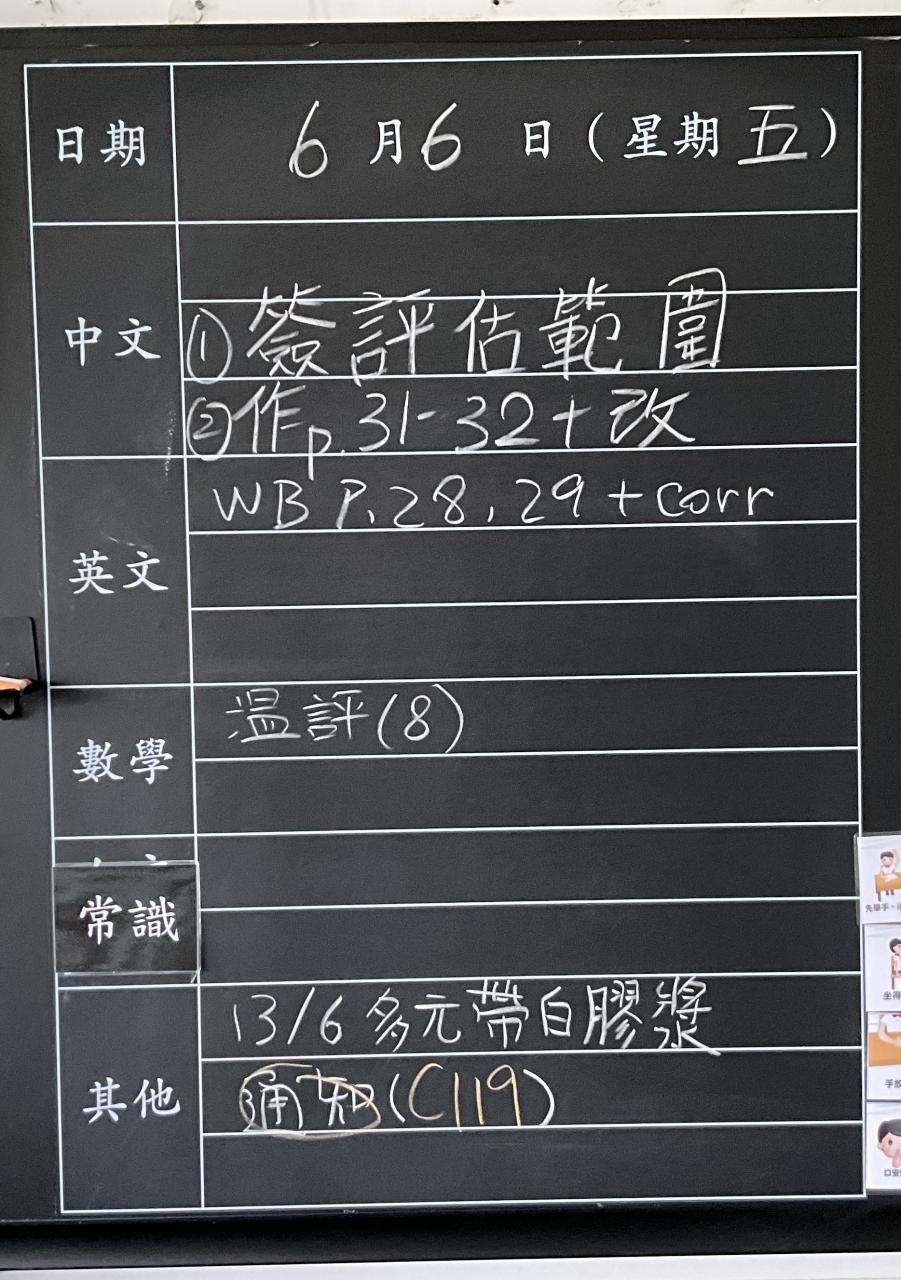 日期 6月6日(星期五)
中文
①簽評估範圍
②作p.31-32+改
英文
WB P.28,29+corr
數學
溫評(8)
常識
其他
13/6多元帶白膠漿
通知(C119)
先舉手、
坐得
手放
口安